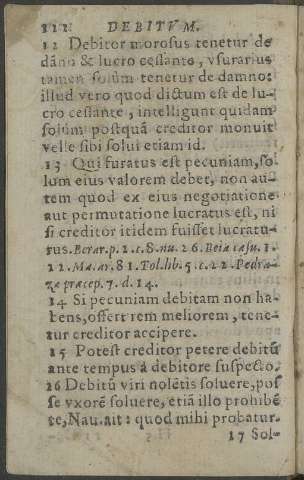 112 DEBITVM.
12 Debitor morosus tenetur de
dāno & lucro cessante, vsurarius
tamen solùm tenetur de damno:
illud vero quod dictum est de lu-
cro cessante, intelligunt quidam
solùm postquā creditor monuit
velle sibi solui etiam id.
13 Qui furatus est pecuniam, so
lum eius valorem debet, non au-
tem quod ex eius negotiatione
aut permutatione lucratus est, ni
si creditor itidem fuisset lucratu-
rus. p. 2. c. 8. nu. 26. Beia casu. 1.
22. Ma. ar. 81. Tol. lib. 5. c. 22. Pedra-
za præcep. 7. d. 14.
14 Si pecuniam debitam non ha-
bens, offert rem meliorem, tene-
tur creditor accipere.
15 Potest creditor petere debitū
ante tempus à debitore suspecto.
16 Debitū viri nolētis soluere, pos
se vxorē soluere, etiā illo prohibē
te, Nau. ait: quod mihi probatur.
17 Sol-